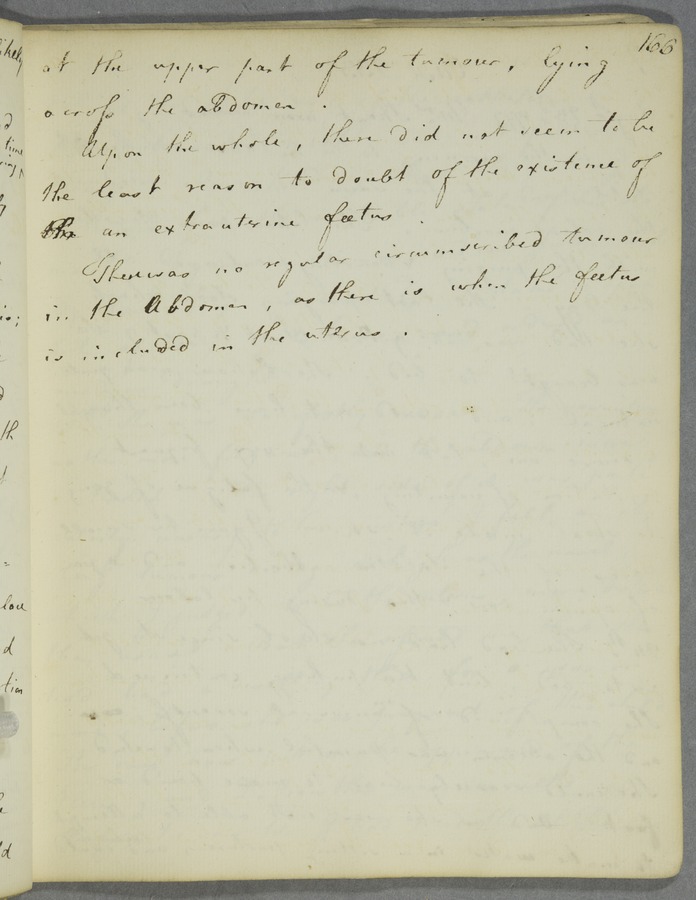 166
at the upper part of the tumour, lying
across the abdomen.
Upon the whole, there did not seem to be
the least reason to doubt of the existence of
an extrauterine foetus.
There was no regular circumscribed tumour
in the Abdomen, as there is when the foetus
is included in the uterus.